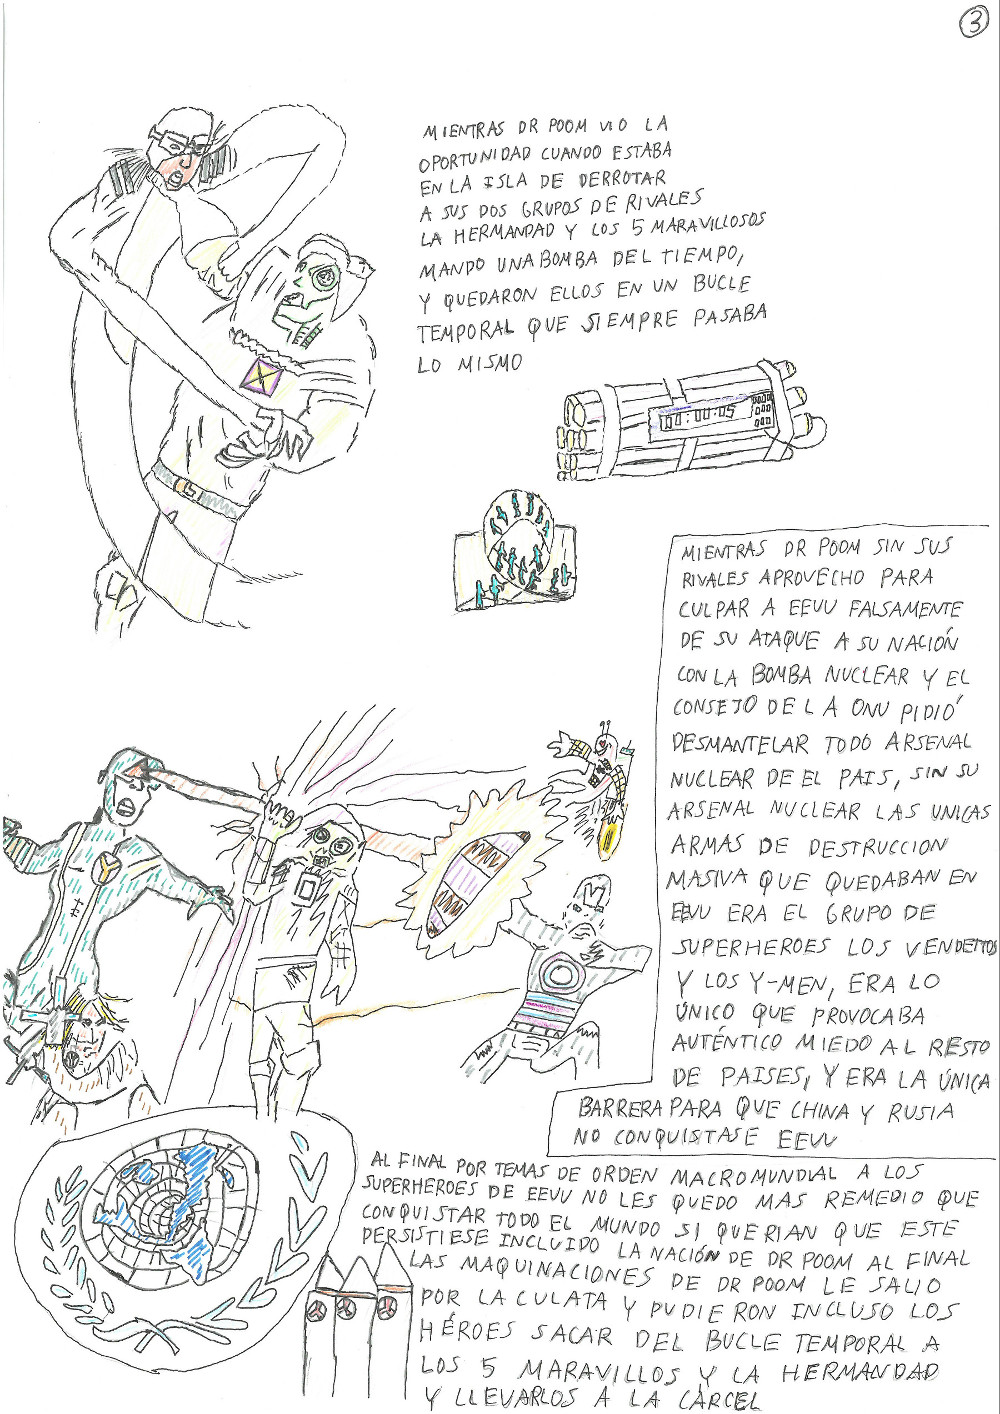 3
MIENTRAS DR POOM VIO LA
OPORTUNIDAD CUANDO ESTABA
EN LA ISLA DE DERROTAR
A SUS DOS GRUPOS DE RIVALES
LA HERMANDAD Y LOS 5 MARAVILLOSOS
MANDO UNA BOMBA DEL TIEMPO,
Y QUEDARON ELLOS EN UN BUCLE
TEMPORAL QUE SIEMPRE PASABA
LO MISMO
00:00:05
MIENTRAS DR POOM SIN SUS
RIVALES APROVECHO PARA
CULPAR A EEUU FALSAMENTE
DE SU ATAQUE A SU NACIÓN
CON LA BOMBA NUCLEAR Y EL
CONSEJO DE LA ONU PIDIÓ
DESMANTELAR TODO ARSENAL
NUCLEAR DE EL PAIS, SIN SU
ARSENAL NUCLEAR LAS UNICAS
ARMAS DE DESTRUCCION
MASIVA QUE QUEDABAN EN
EEUU ERA EL GRUPO DE
SUPERHEROES LOS VENDETTOS
Y LOS Y-MEN, ERA LO
ÚNICO QUE PROVOCABA
AUTÉNTICO MIEDO AL RESTO
DE PAISES, Y ERA LA ÚNICA
BARRERA PARA QUE CHINA Y RUSIA
NO CONQUISTASE EEUU
AL FINAL POR TEMAS DE ORDEN MACROMUNDIAL A LOS
SUPERHEROES DE EEUU NO LES QUEDO MAS REMEDIO QUE
CONQUISTAR TODO EL MUNDO SI QUERIAN QUE ESTE
PERSISTIESE INCLUIDO LA NACIÓN DE DR POOM AL FINAL
LAS MAQUINACIONES DE DR POOM LE SALIO
POR LA CULATA Y PUDIERON INCLUSO LOS
HÉROES SACAR DEL BUCLE TEMPORAL A
LOS 5 MARAVILLOS Y LA HERMANDAD
Y LLEVARLOS A LA CÁRCEL